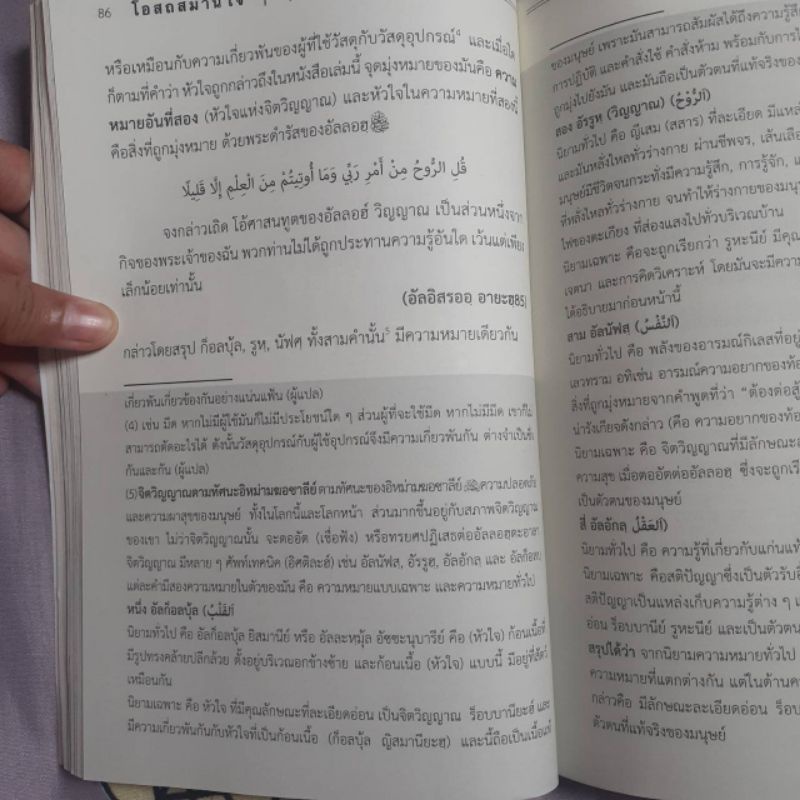 86 โอสถสมานใจ
หรือเหมือนกับความเกี่ยวพันของผู้ที่ใช้วัสดุกับวัสดุอุปกรณ์⁴ และเมื่อใด
ก็ตามที่คำว่า หัวใจถูกกล่าวถึงในหนังสือเล่มนี้ จุดมุ่งหมายของมันคือ ความ
หมายอันที่สอง (หัวใจแห่งจิตวิญญาณ) และหัวใจในความหมายที่สองนี้
คือสิ่งที่ถูกมุ่งหมาย ด้วยพระดำรัสของอัลลอฮฺ
قُلِ الرُّوحُ مِنْ أَمْرِ رَبِّي وَمَا أُوتِيتُمْ مِنَ الْعِلْمِ إِلَّا قَلِيلًا
จงกล่าวเถิด โอ้ศาสนทูตของอัลลอฮ์ วิญญาณ เป็นส่วนหนึ่งจาก
กิจของพระเจ้าของฉัน พวกท่านไม่ได้ถูกประทานความรู้อันใด เว้นแต่เพียง
เล็กน้อยเท่านั้น
(อัลอิสรออฺ อายะฮฺ85)
กล่าวโดยสรุป ก็อลบุ้ล, รูหฺ, นัฟศฺ ทั้งสามคำนั้น⁵ มีความหมายเดียวกัน
เกี่ยวพันเกี่ยวข้องกันอย่างแน่นแฟ้น (ผู้แปล)
(4) เช่น มีด หากไม่มีผู้ใช้มันก็ไม่มีประโยชน์ใด ๆ ส่วนผู้ที่จะใช้มีด หากไม่มีมีด เขาก็ไม่
สามารถตัดอะไรได้ ดังนั้นวัสดุอุปกรณ์กับผู้ใช้อุปกรณ์จึงมีความเกี่ยวพันกัน ต่างจำเป็นซึ่ง
กันและกัน (ผู้แปล)
(5)จิตวิญญาณตามทัศนะอิหม่ามฆอซาลีย์ ตามทัศนะของอิหม่ามฆอซาลีย์ ความปลอดภัย
และความผาสุขของมนุษย์ ทั้งในโลกนี้และโลกหน้า ส่วนมากขึ้นอยู่กับสภาพจิตวิญญาณ
ของเขา ไม่ว่าจิตวิญญาณนั้น จะตออัต (เชื่อฟัง) หรือทรยศปฏิเสธต่ออัลลอฮฺตะอาลา
จิตวิญญาณ มีหลาย ๆ ศัพท์เทคนิค (อิศติละฮ์) เช่น อัลนัฟสฺ, อัรรูฮฺ, อัลอักลฺ และ อัลก็อลบฺ
แต่ละคำมีสองความหมายในตัวของมัน คือ ความหมายแบบเฉพาะ และความหมายทั่วไป
หนึ่ง อัลก็อลบุ้ล (اَلْقَلْبُ)
นิยามทั่วไป คือ อัลก็อลบุ้ล ยิสมานีย์ หรือ อัลละหฺมุ้ล อัซซะนุบารีย์ คือ (หัวใจ) ก้อนเนื้อที่
มีรูปทรงคล้ายปลีกล้วย ตั้งอยู่บริเวณอกข้างซ้าย และก้อนเนื้อ (หัวใจ) แบบนี้ มีอยู่ที่สัตว์
เหมือนกัน
นิยามเฉพาะ คือ หัวใจ ที่มีคุณลักษณะที่ละเอียดอ่อน เป็นจิตวิญญาณ ร็อบบานียะฮ์ และ
มีความเกี่ยวพันกันกับหัวใจที่เป็นก้อนเนื้อ (ก็อลบุ้ล ญิสมานียะฮฺ) และนี้ถือเป็นเนื้อแท้
ของมนุษย์ เพราะมันสามารถสัมผัสได้ถึงความรู้สึก
การปฏิบัติ และคำสั่งใช้ คำสั่งห้าม พร้อมกับการ
ถูกมุ่งไปยังมัน และมันถือเป็นตัวตนที่แท้จริงของ
สอง อัรรูหฺ (วิญญาณ) (اَلرُّوْحُ)
นิยามทั่วไป คือ ญีเสม (สสาร) ที่ละเอียด มีแหล่
และมันหลั่งไหลทั่วร่างกาย ผ่านชีพจร, เส้นเลือ
มนุษย์มีชีวิตจนกระทั่งมีความรู้สึก, การรู้จัก,
ที่หลั่งไหลทั่วร่างกาย จนทำให้ร่างกายของมนุ
ไฟของตะเกียง ที่ส่องแสงไปทั่วบริเวณบ้าน
นิยามเฉพาะ คือจะถูกเรียกว่า รูหะนีย์ มีคุณ
เจตนา และการคิดวิเคราะห์ โดยมันจะมีความ
ได้อธิบายมาก่อนหน้านี้
สาม อัลนัฟสฺ (اَلنَّفْسُ)
นิยามทั่วไป คือ พลังของอารมณ์กิเลสที่อยู่
เลวทราม อทิเช่น อารมณ์ความอยากของท้อ
สิ่งที่ถูกมุ่งหมายจากคำพูดที่ว่า "ต้องต่อสู้
น่ารังเกียจดังกล่าว (คือ ความอยากของท้อง
นิยามเฉพาะ คือ จิตวิญญาณที่มีลักษณะ
ความสุข เมื่อตออัตต่ออัลลอฮฺ ซึ่งจะถูกเรี
เป็นตัวตนของมนุษย์
สี่ อัลอักลฺ (اَلْعَقْلُ)
นิยามทั่วไป คือ ความรู้ที่เกี่ยวกับแก่นแท้
นิยามเฉพาะ คือสติปัญญาซึ่งเป็นตัวรับ
สติปัญญาเป็นแหล่งเก็บความรู้ต่าง ๆ
อ่อน ร็อบบานีย์ รูหะนีย์ และเป็นตัวตน
สรุปได้ว่า จากนิยามความหมายทั่วไป
ความหมายที่แตกต่างกัน แต่ในด้านค
กล่าวคือ มีลักษณะละเอียดอ่อน ร็อบ
ตัวตนที่แท้จริงของมนุษย์